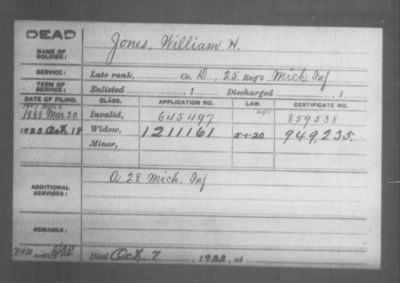 DEAD
NAME OF SOLDIER: Jones, William H.
SERVICE: Late rank, Co. D, 25 Reg't Mich Inf
TERM OF SERVICE: Enlisted , 1 Discharged , 1
DATE OF FILING. CLASS. APPLICATION NO. LAW. CERTIFICATE NO.
1888 Mar. 20 Invalid, 645497 859538
1923 Oct. 18 Widow, 1211161 5-1-20 949,235.
Minor,
ADDITIONAL SERVICES: A 28 Mich. Inf
REMARKS:
Died Oct. 7, 1923, at